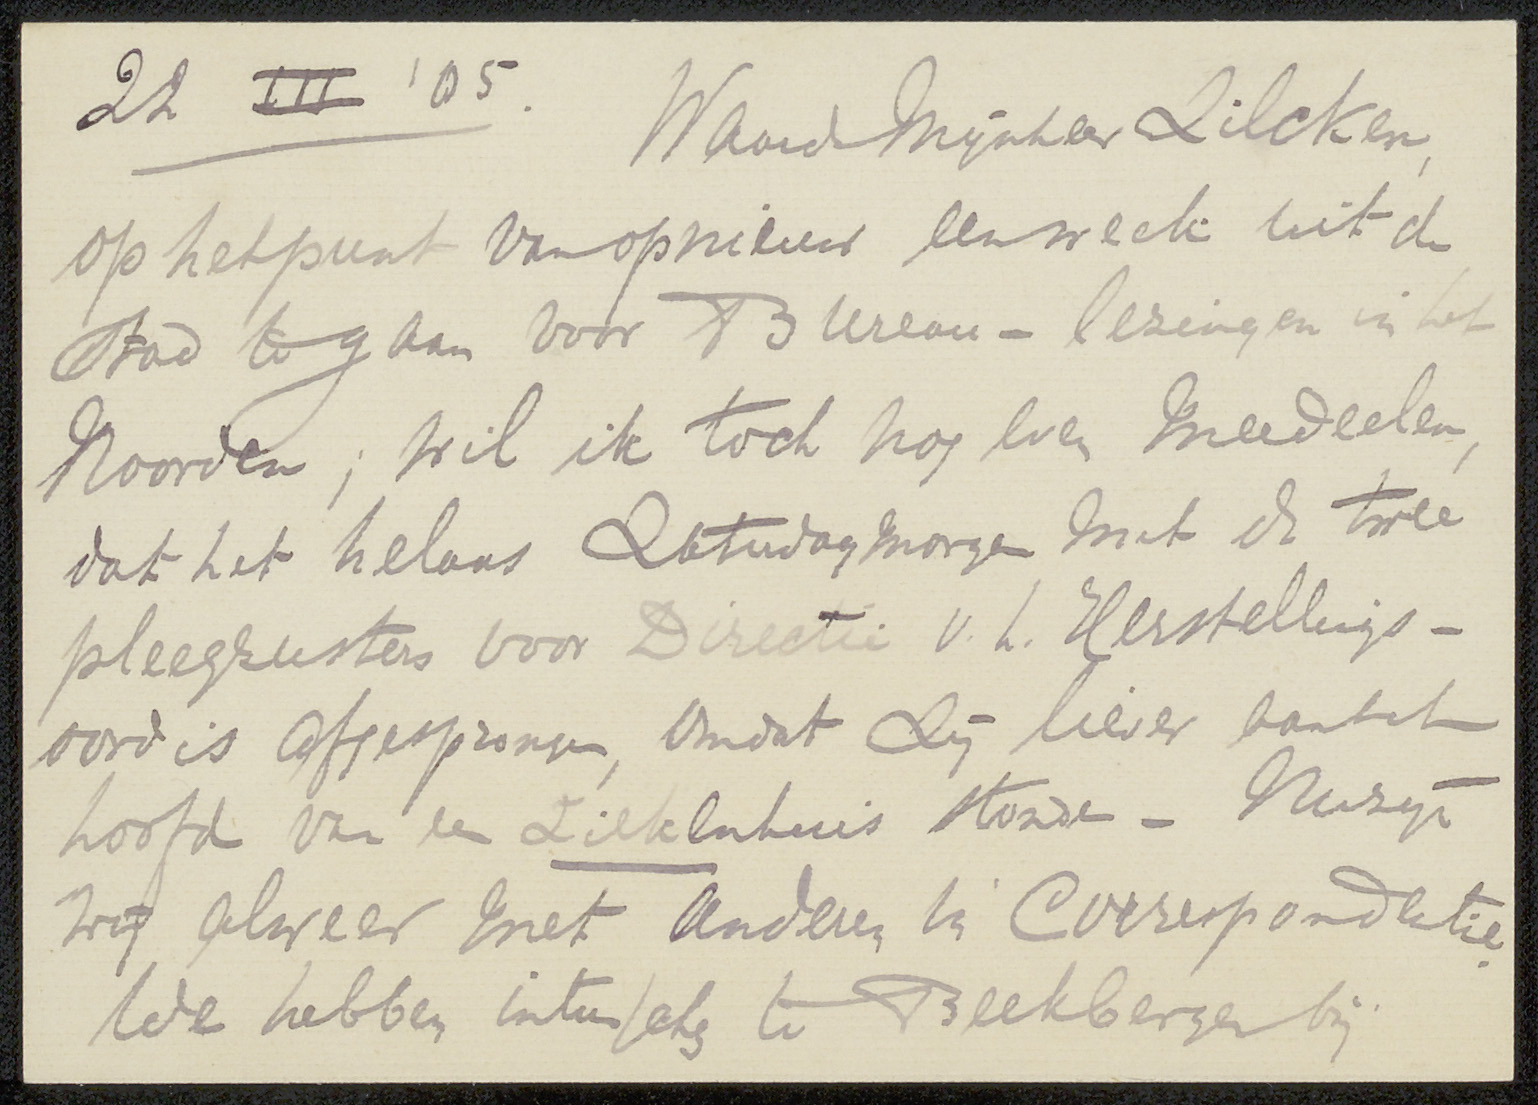 22 III '05.
Waarde Mijnheer Zilcken,
op het punt van opnieuw een week uit de
stad te gaan voor Bureau-lezingen in het
Noorden; wil ik toch nog even meedeelen,
dat het helaas Zaterdagmorgen met de twee
pleegzusters voor Directie v. h. Herstellings-
oord is afgesprongen, omdat zij liever aan het
hoofd van een Ziekenhuis stonden - Nu zijn
wij alweer met anderen in Correspondentie.
We hebben intusschen te Beekbergen bij